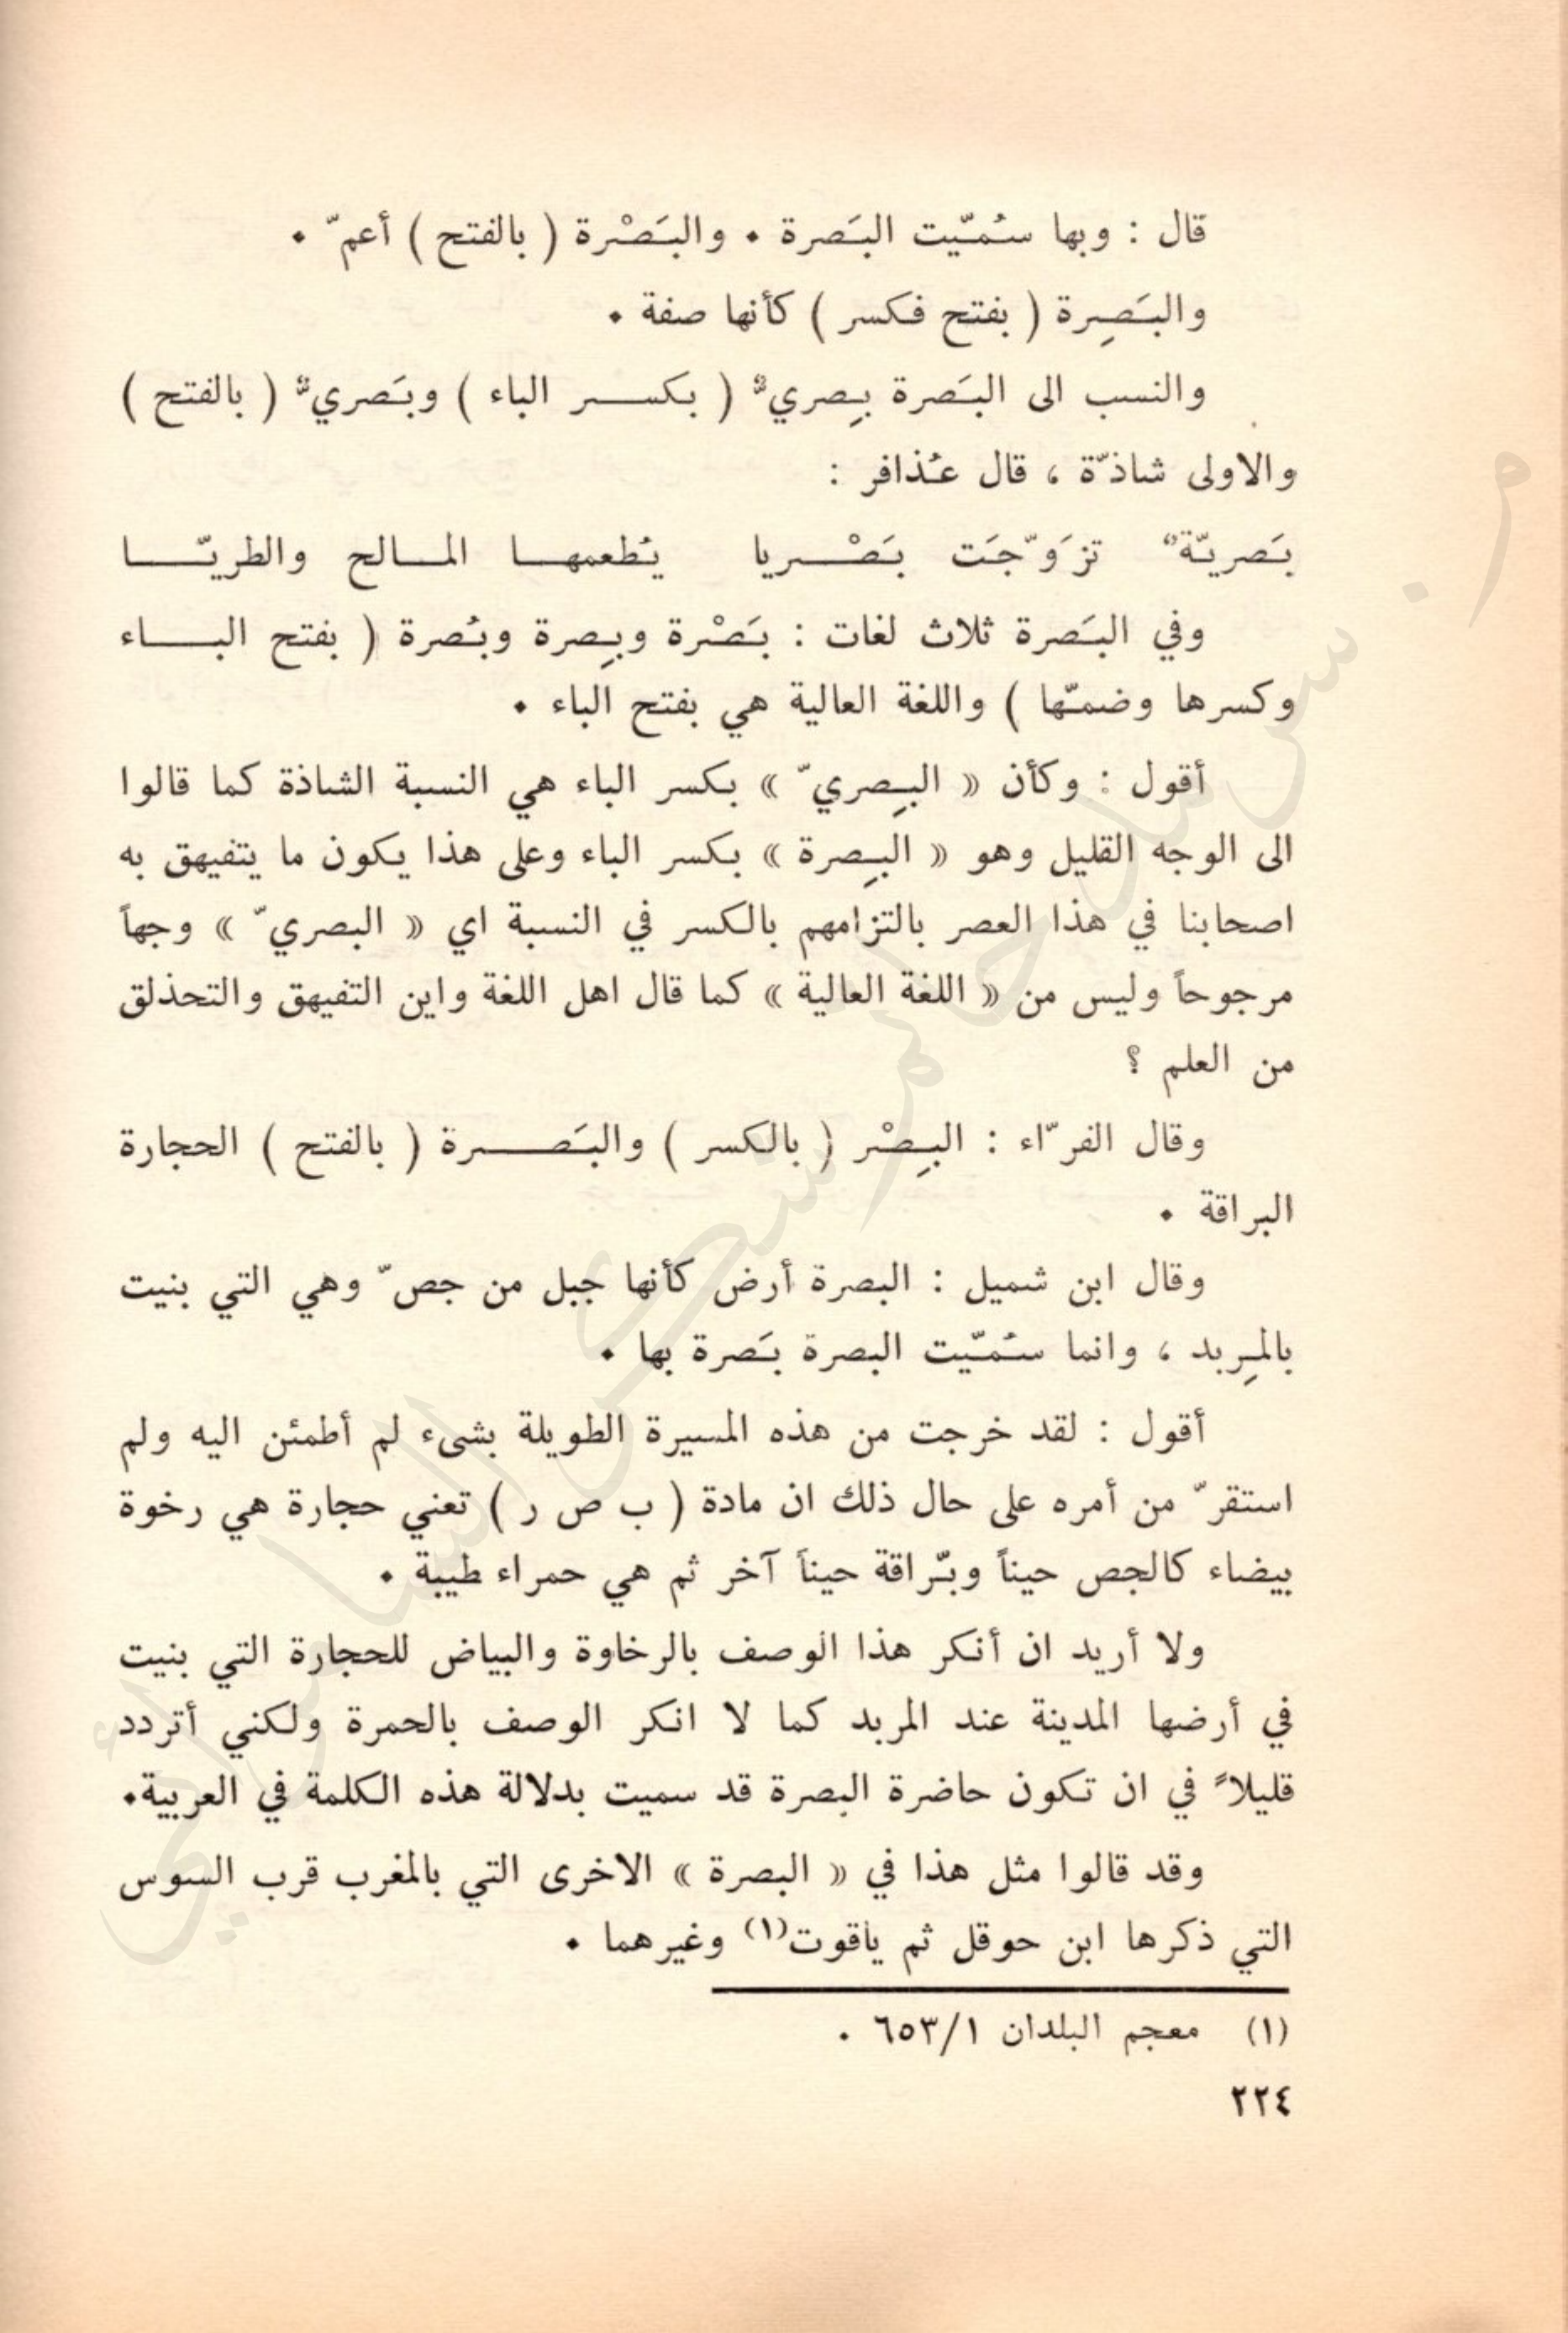 قال : وبها سُمّيت البَصرة . والبَصْرة ( بالفتح ) أعمّ .
والبَصِرة ( بفتح فكسر ) كأنها صفة .
والنسب الى البَصرة بِصريٌّ ( بكسر الباء ) وبَصريٌّ ( بالفتح )
والاولى شاذّة ، قال عُذافر :
بَصريّةٌ تزَوّجَت بَصْريا يُطعمها المالح والطريّا
وفي البَصرة ثلاث لغات : بَصْرة وبِصرة وبُصرة ( بفتح الباء
وكسرها وضمّها ) واللغة العالية هي بفتح الباء .
أقول : وكأن « البِصريّ » بكسر الباء هي النسبة الشاذة كما قالوا
الى الوجه القليل وهو « البِصرة » بكسر الباء وعلى هذا يكون ما يتفيهق به
اصحابنا في هذا العصر بالتزامهم بالكسر في النسبة اي « البصريّ » وجهاً
مرجوحاً وليس من « اللغة العالية » كما قال اهل اللغة واين التفيهق والتحذلق
من العلم ؟
وقال الفرّاء : البِصْر ( بالكسر ) والبَصرة ( بالفتح ) الحجارة
البراقة .
وقال ابن شميل : البصرة أرض كأنها جبل من جصّ وهي التي بنيت
بالمِربد ، وانما سُمّيت البصرة بَصرة بها .
أقول : لقد خرجت من هذه المسيرة الطويلة بشىء لم أطمئن اليه ولم
استقرّ من أمره على حال ذلك ان مادة ( ب ص ر ) تعني حجارة هي رخوة
بيضاء كالجص حيناً وبرّاقة حيناً آخر ثم هي حمراء طيبة .
ولا أريد ان أنكر هذا الوصف بالرخاوة والبياض للحجارة التي بنيت
في أرضها المدينة عند المربد كما لا انكر الوصف بالحمرة ولكني أتردد
قليلاً في ان تكون حاضرة البصرة قد سميت بدلالة هذه الكلمة في العربية.
وقد قالوا مثل هذا في « البصرة » الاخرى التي بالمغرب قرب السوس
التي ذكرها ابن حوقل ثم ياقوت(١) وغيرهما .
(١) معجم البلدان ٦٥٣/١ .
٢٢٤